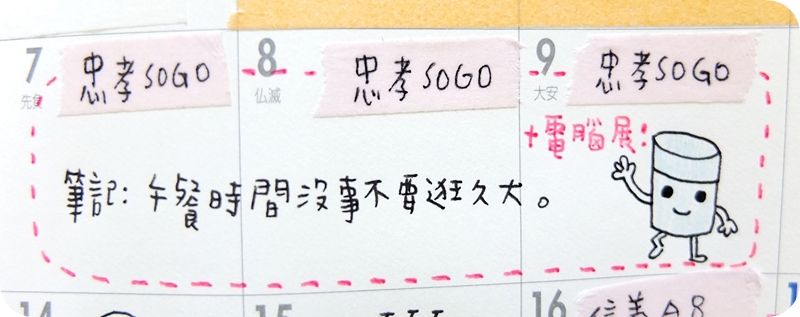 7 忠孝SOGO 8 忠孝SOGO 9 忠孝SOGO
先負 仏滅 大安
+電腦展!
筆記:午餐時間沒事不要逛久大。
14 15 16 信義A8